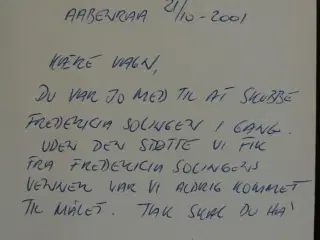 AABENRAA 21/10-2001
KÆRE VAGN,
DU VAR JO MED TIL AT SKUBBE
FREDERICIA SOLINGEN I GANG.
UDEN DEN STØTTE VI FIK
FRA FREDERICIA SOLINGENS
VENNER VAR VI ALDRIG KOMMET
TIL MÅLET. TAK SKAL DU HA!